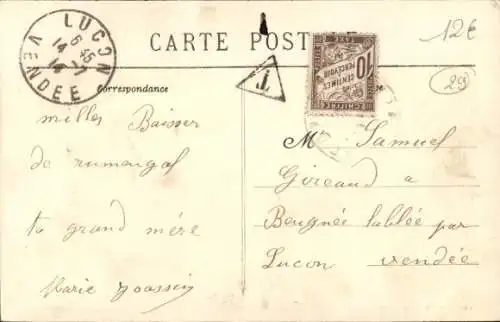 LUÇON
6 45
14 - 7
14
VENDÉE
CARTE POST
T
10
CENTIMES
A PERCEVOIR
CHIFFRE
TAXE
12€
29
Correspondance
milles Baiser
de rumengol
ta grand mère
Marie
Mr Samuel
Gireaud a
Beugnée lablée par
Lucon vendée